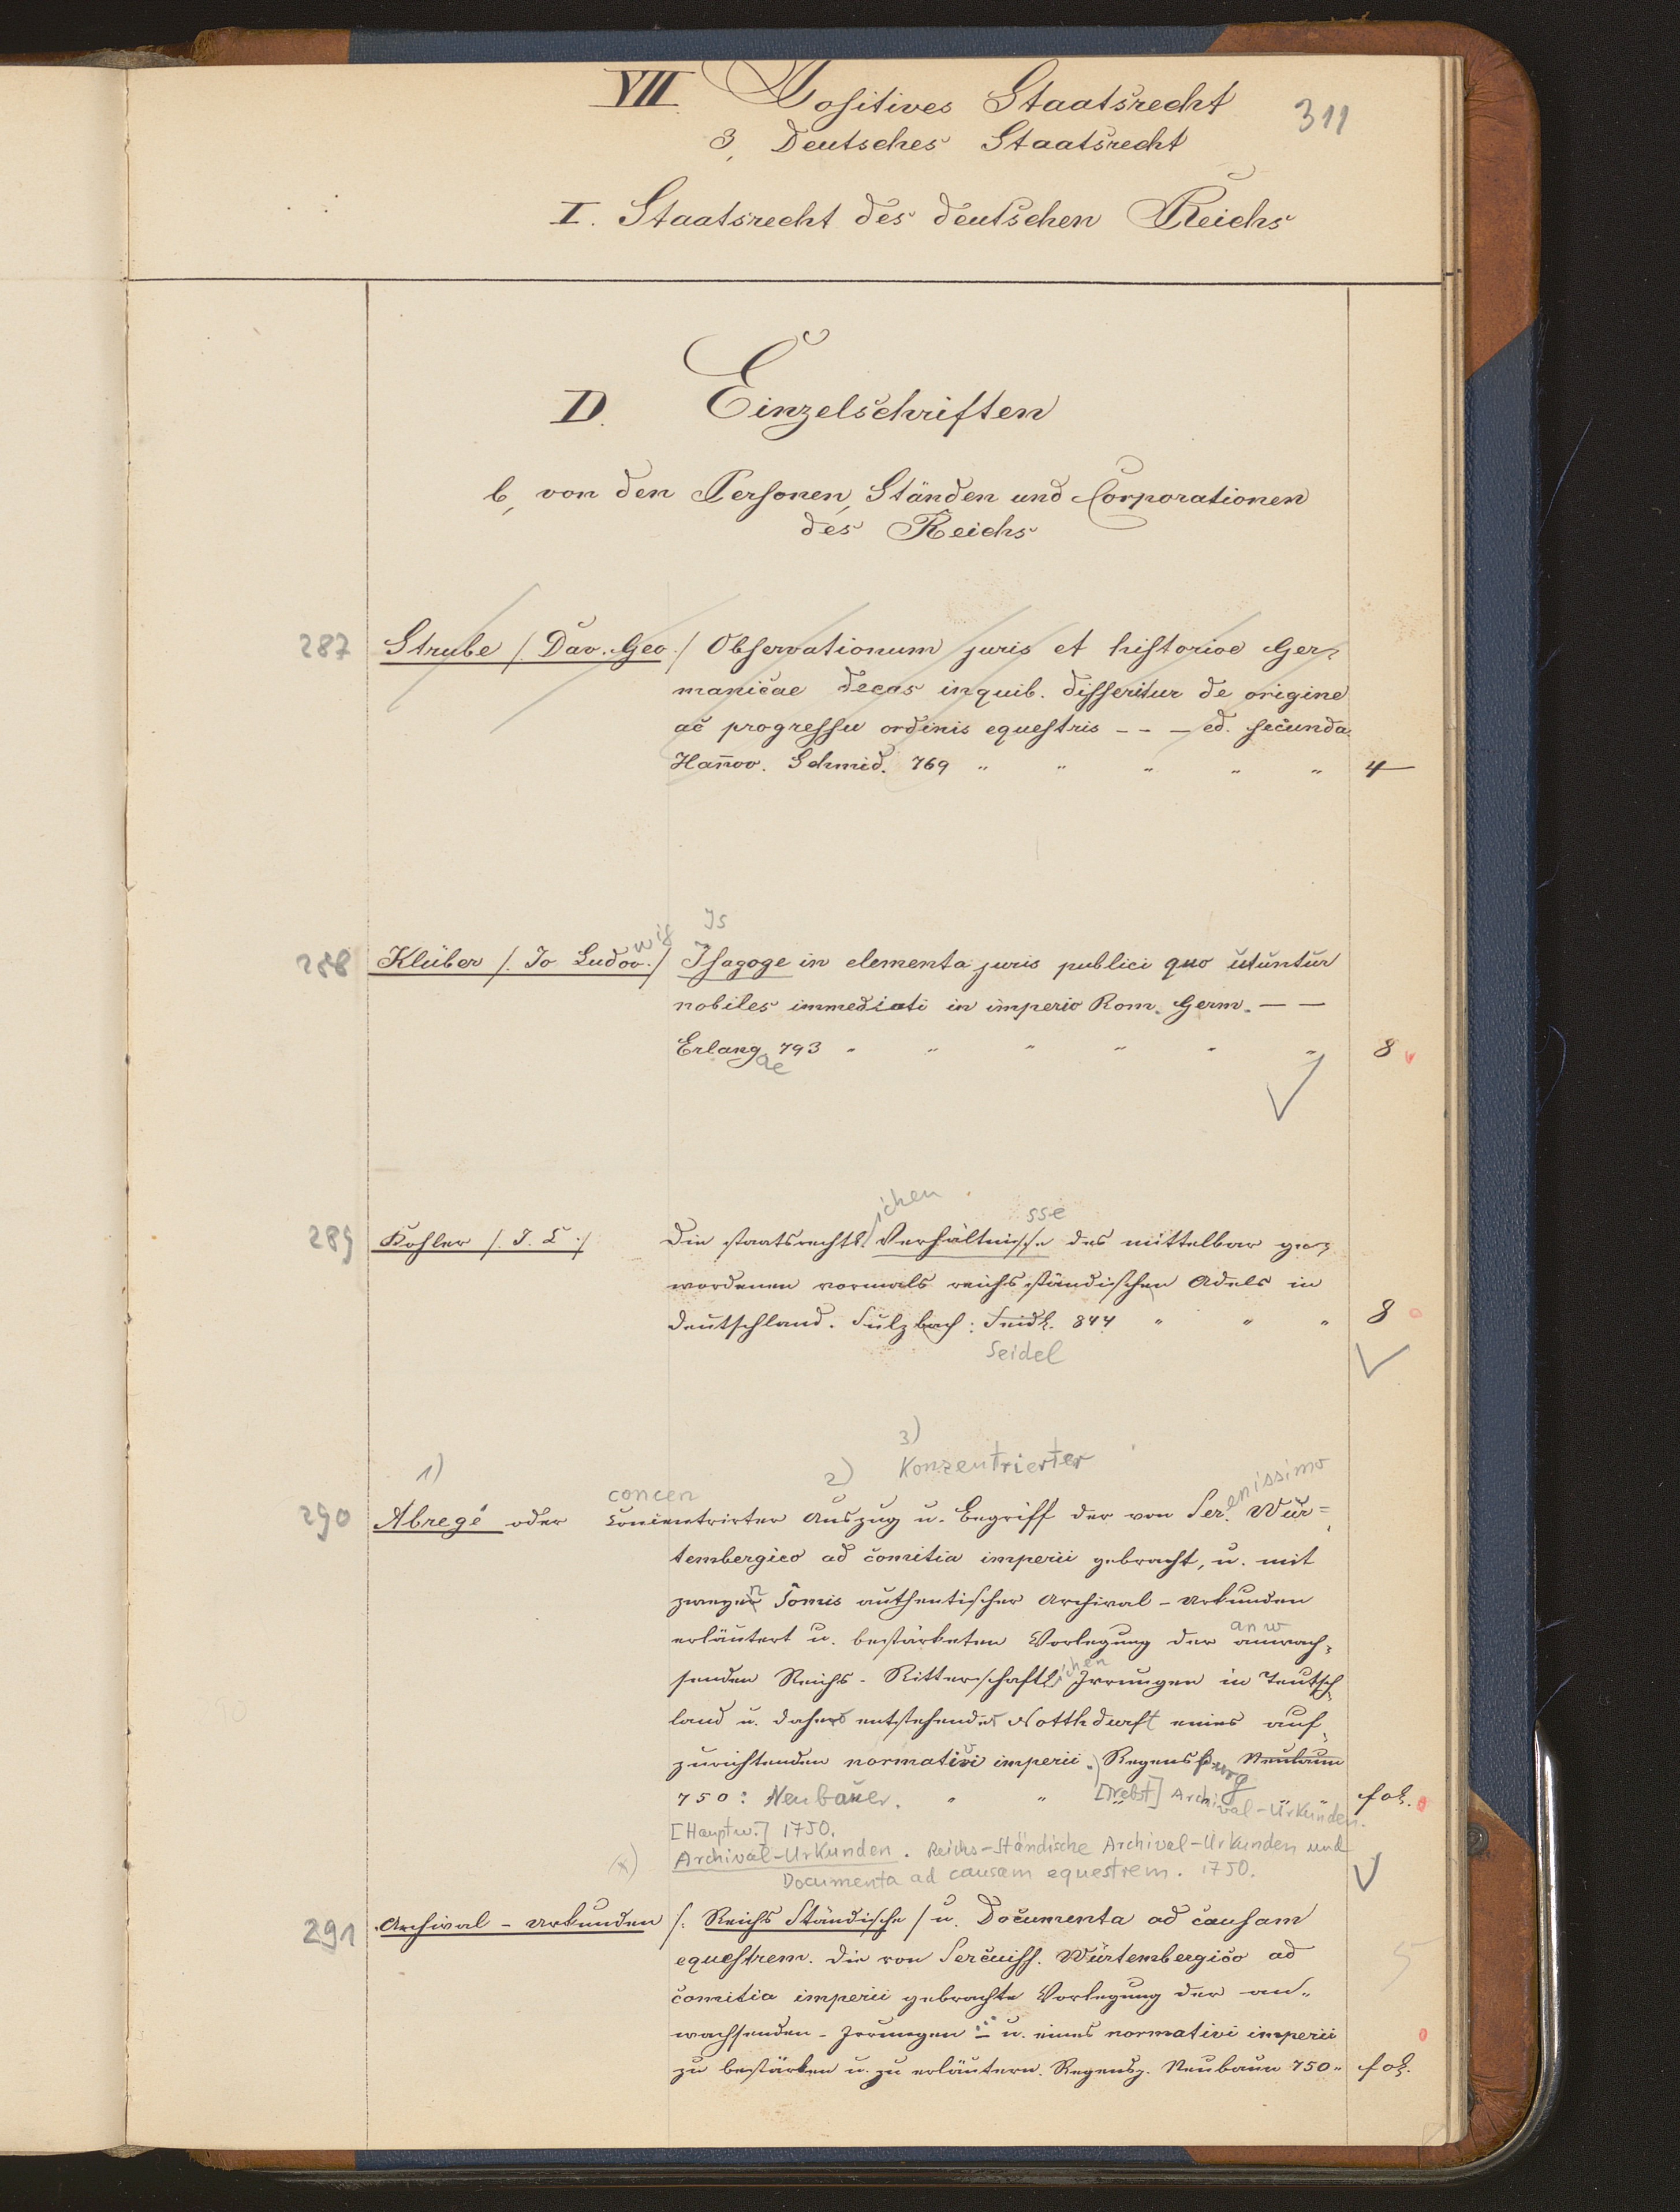 VII. Positives Staatsrecht
311
3, Deutsches Staatsrecht
I. Staatsrecht des deutschen Reichs
D. Einzelschriften
b, von den Personen, Ständen und Corporationen
des Reichs
287 Strube /. Dav. Geo ./ Observationum juris et historiae Ger-
manicae decas in quib. disseritur de origine
ac progressu ordinis equestris - - - ed. secunda.
Hannov. Schmid. 769 " " " " " 4
wig Is
288 Klüber /. Jo Ludov. / Isagoge in elementa juris publici quo utuntur
nobiles immediati in imperio Rom. Germ. - -
Erlang. 793 " " " " " " 8
ae
ichen sse
289 Kohler /. J. L ./ Die staatsrechtl. Verhältnisse des mittelbar ge-
wordenen vormals reichsständischen Adels in
Deutschland. Sulzbach: Seidl. 844 " " " 8
Seidel
3)
1) 2) Konzentrierter
concen enissimo
290 Abregé oder concientrirter Auszug u. Begriff der von Ser. Wür=
tembergico ad comitia imperii gebracht, u. mit
zweyen Tomis authentischer Archival-Urkunden
erläutert u. bestärketen Vorlegung der anwach-
anw
senden Reichs-Ritterschaftl. Irrungen in Teutsch
ichen
land u. daher entstehender Notthdurft eines auf-
zurichtenden normativi imperii. Regensburg Neubaur
750: Neubauer. " " [Nebst] Archival-Urkunden. fol.
[Hauptw.] 1750.
Archival-Urkunden. Reichs-Ständische Archival-Urkunden und
Documenta ad causam equestrem. 1750.
291 Archival-Urkunden /: Reichs Ständische / u. Documenta ad causam
equestrem. die von Sereniss. Würtembergico ad
comitia imperii gebrachte Vorlegung der an-
wachsenden - Irrungen - u. eines normativi imperii
zu bestärken u. zu erläutern. Regensp. Neubaur 750 " fol.